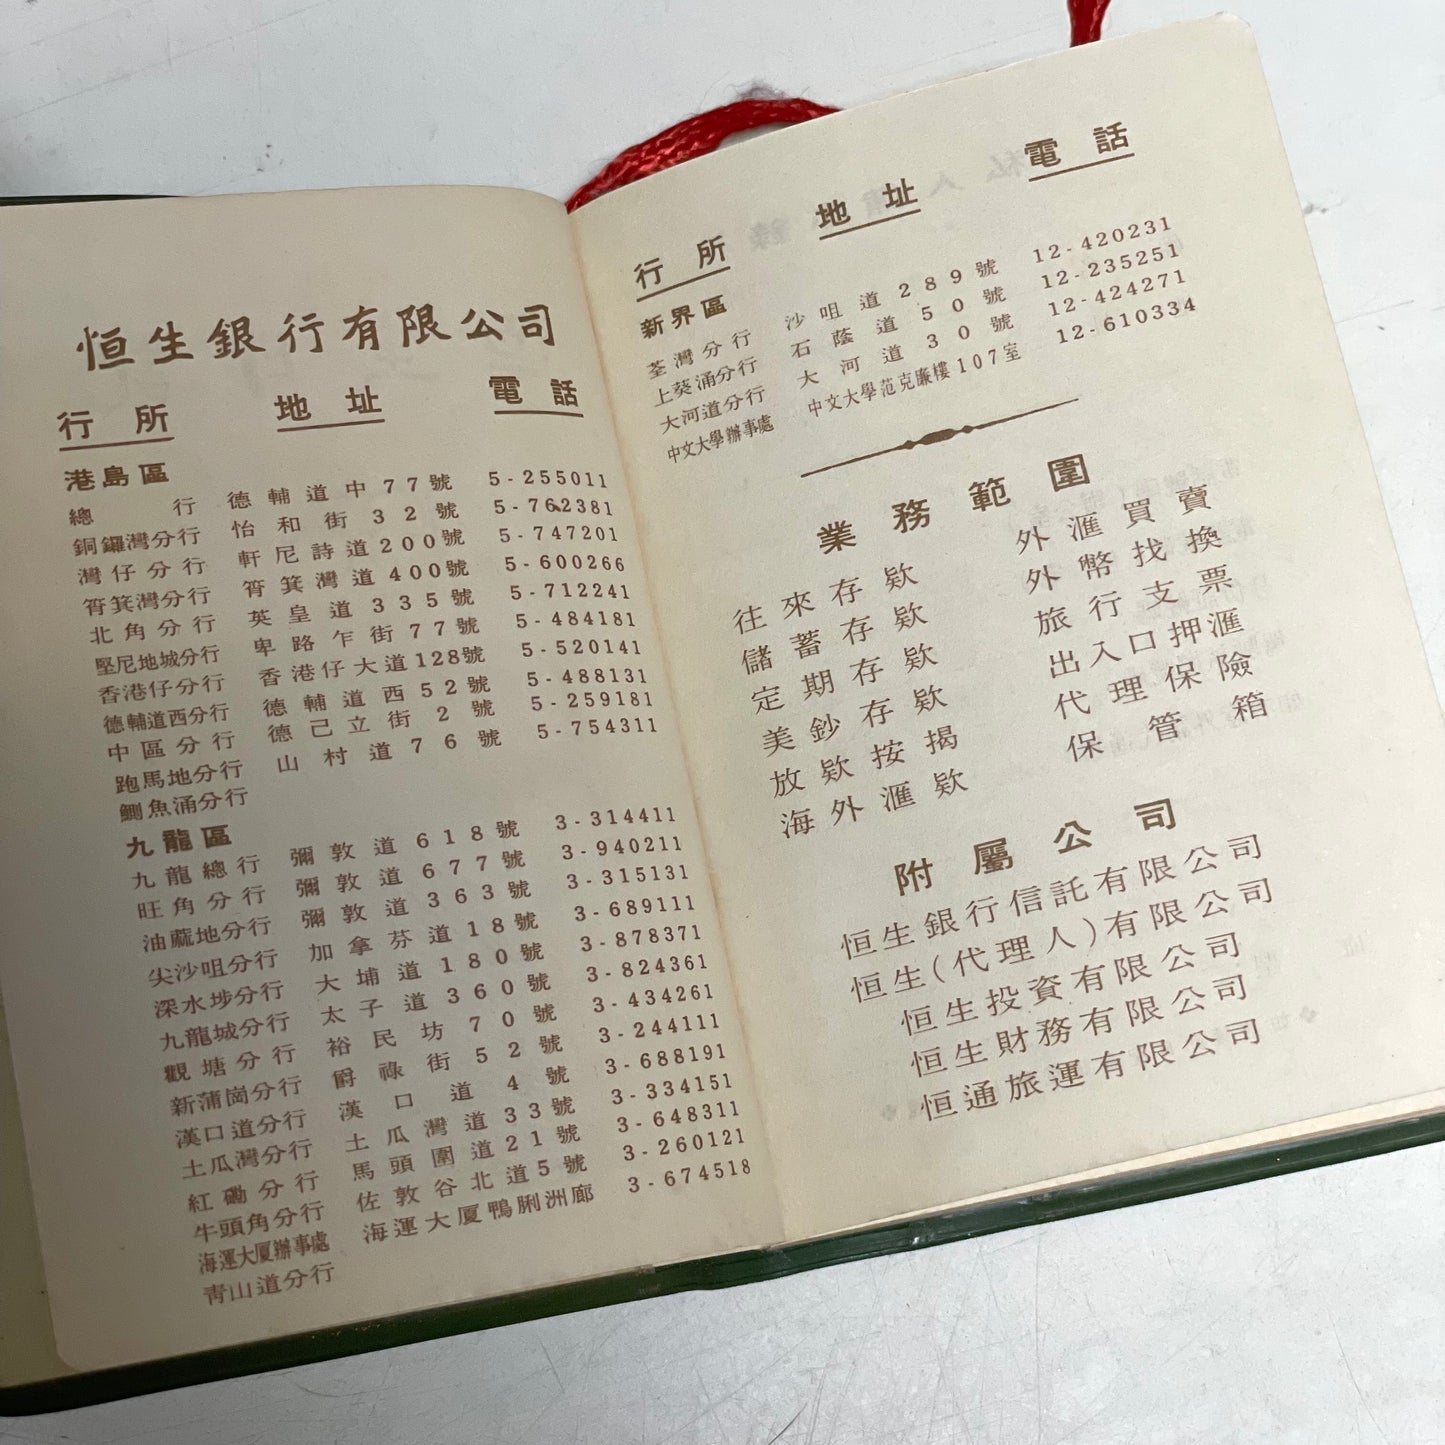 恒生銀行有限公司
行所 地址 電話
港島區
總行 德輔道中77號 5-255011
銅鑼灣分行 怡和街32號 5-762381
灣仔分行 軒尼詩道200號 5-747201
筲箕灣分行 筲箕灣道400號 5-600266
北角分行 英皇道335號 5-712241
堅尼地城分行 卑路乍街77號 5-484181
香港仔分行 香港仔大道128號 5-520141
德輔道西分行 德輔道西52號 5-488131
中區分行 德己立街2號 5-259181
跑馬地分行 山村道76號 5-754311
鰂魚涌分行
九龍區
九龍總行 彌敦道618號 3-314411
旺角分行 彌敦道677號 3-940211
油蔴地分行 彌敦道363號 3-315131
尖沙咀分行 加拿芬道18號 3-689111
深水埗分行 大埔道180號 3-878371
九龍城分行 太子道360號 3-824361
觀塘分行 裕民坊70號 3-434261
新蒲崗分行 爵祿街52號 3-244111
漢口道分行 漢口道4號 3-688191
土瓜灣分行 土瓜灣道33號 3-334151
紅磡分行 馬頭圍道21號 3-648311
牛頭角分行 佐敦谷北道5號 3-260121
海運大厦辦事處 海運大厦鴨脷洲廊 3-674518
青山道分行
行所 地址 電話
新界區
荃灣分行 沙咀道289號 12-420231
上葵涌分行 石蔭道50號 12-235251
大河道分行 大河道30號 12-424271
中文大學辦事處 中文大學范克廉樓107室 12-610334
業務範圍
往來存欵 外滙買賣
儲蓄存欵 外幣找換
定期存欵 旅行支票
美鈔存欵 出入口押滙
放欵按揭 代理保險
海外滙欵 保管箱
附屬公司
恒生銀行信託有限公司
恒生(代理人)有限公司
恒生投資有限公司
恒生財務有限公司
恒通旅運有限公司